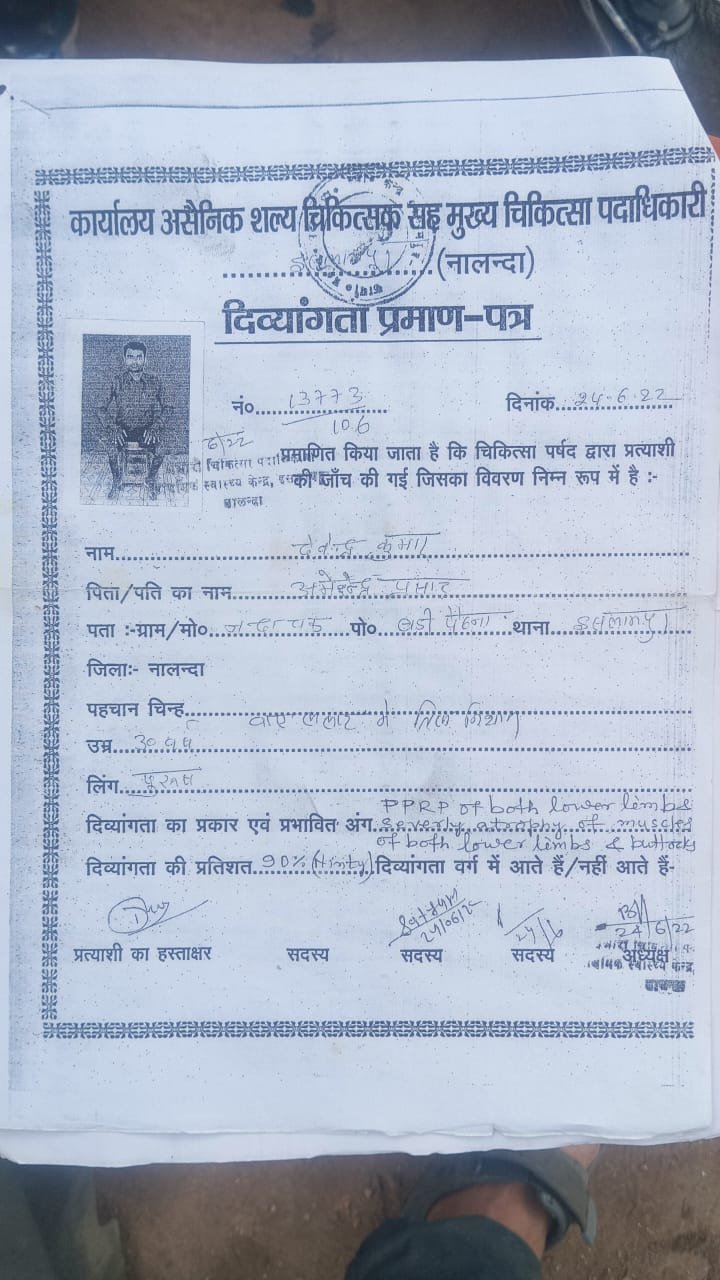 कार्यालय असैनिक शल्य चिकित्सक सह मुख्य चिकित्सा पदाधिकारी
इसलामपुर (नालन्दा)
दिव्यांगता प्रमाण-पत्र
नं० 13773 दिनांक 24.6.22
106
6/22
प्रमाणित किया जाता है कि चिकित्सा पर्षद द्वारा प्रत्याशी
की जाँच की गई जिसका विवरण निम्न रूप में है :-
स्वास्थ्य केन्द्र,
नालन्दा
नाम कुमार
पिता/पति का नाम प्रसाद
पता :-ग्राम/मो० पो० थाना इसलामपुर
जिलाः- नालन्दा
पहचान चिन्ह ललाट में निशान
उम्र 30 वर्ष
लिंग पुरुष
PPRP of both lower limbs
दिव्यांगता का प्रकार एवं प्रभावित अंग severly atrophy of muscles
of both lower limbs & buttocks
दिव्यांगता की प्रतिशत 90% (Ninty) दिव्यांगता वर्ग में आते हैं/नहीं आते हैं-
24/06/22 24/6 24/6/22
प्रत्याशी का हस्ताक्षर सदस्य सदस्य सदस्य अध्यक्ष
स्वास्थ्य केन्द्र,